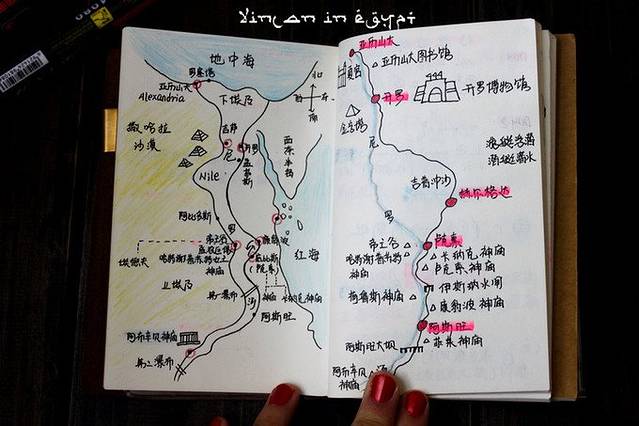 Vincan in égypt
地中海
亚历山大
Alexandria
下埃及
北
西
东
南
撒哈拉
沙漠
吉萨
开罗
孟菲斯
尼
Nile
罗
河
西奈半岛
阿比多斯
帝王谷
哈特谢普苏特女王
神庙
底比斯
(卢克索)
红海
上埃及
第一瀑布
神庙
卡纳克神庙
阿斯旺
阿布辛贝神庙
第二瀑布
亚历山大
亚历山大图书馆
开罗
开罗博物馆
金字塔
尼
吉普冲沙
罗
赫尔格达
帝王谷
哈特谢普苏特
神庙
卢克索
卡纳克神庙
卢克索神庙
伊斯纳水闸
神庙
阿斯旺
菲莱神庙
阿斯旺大坝
阿布辛贝
神庙